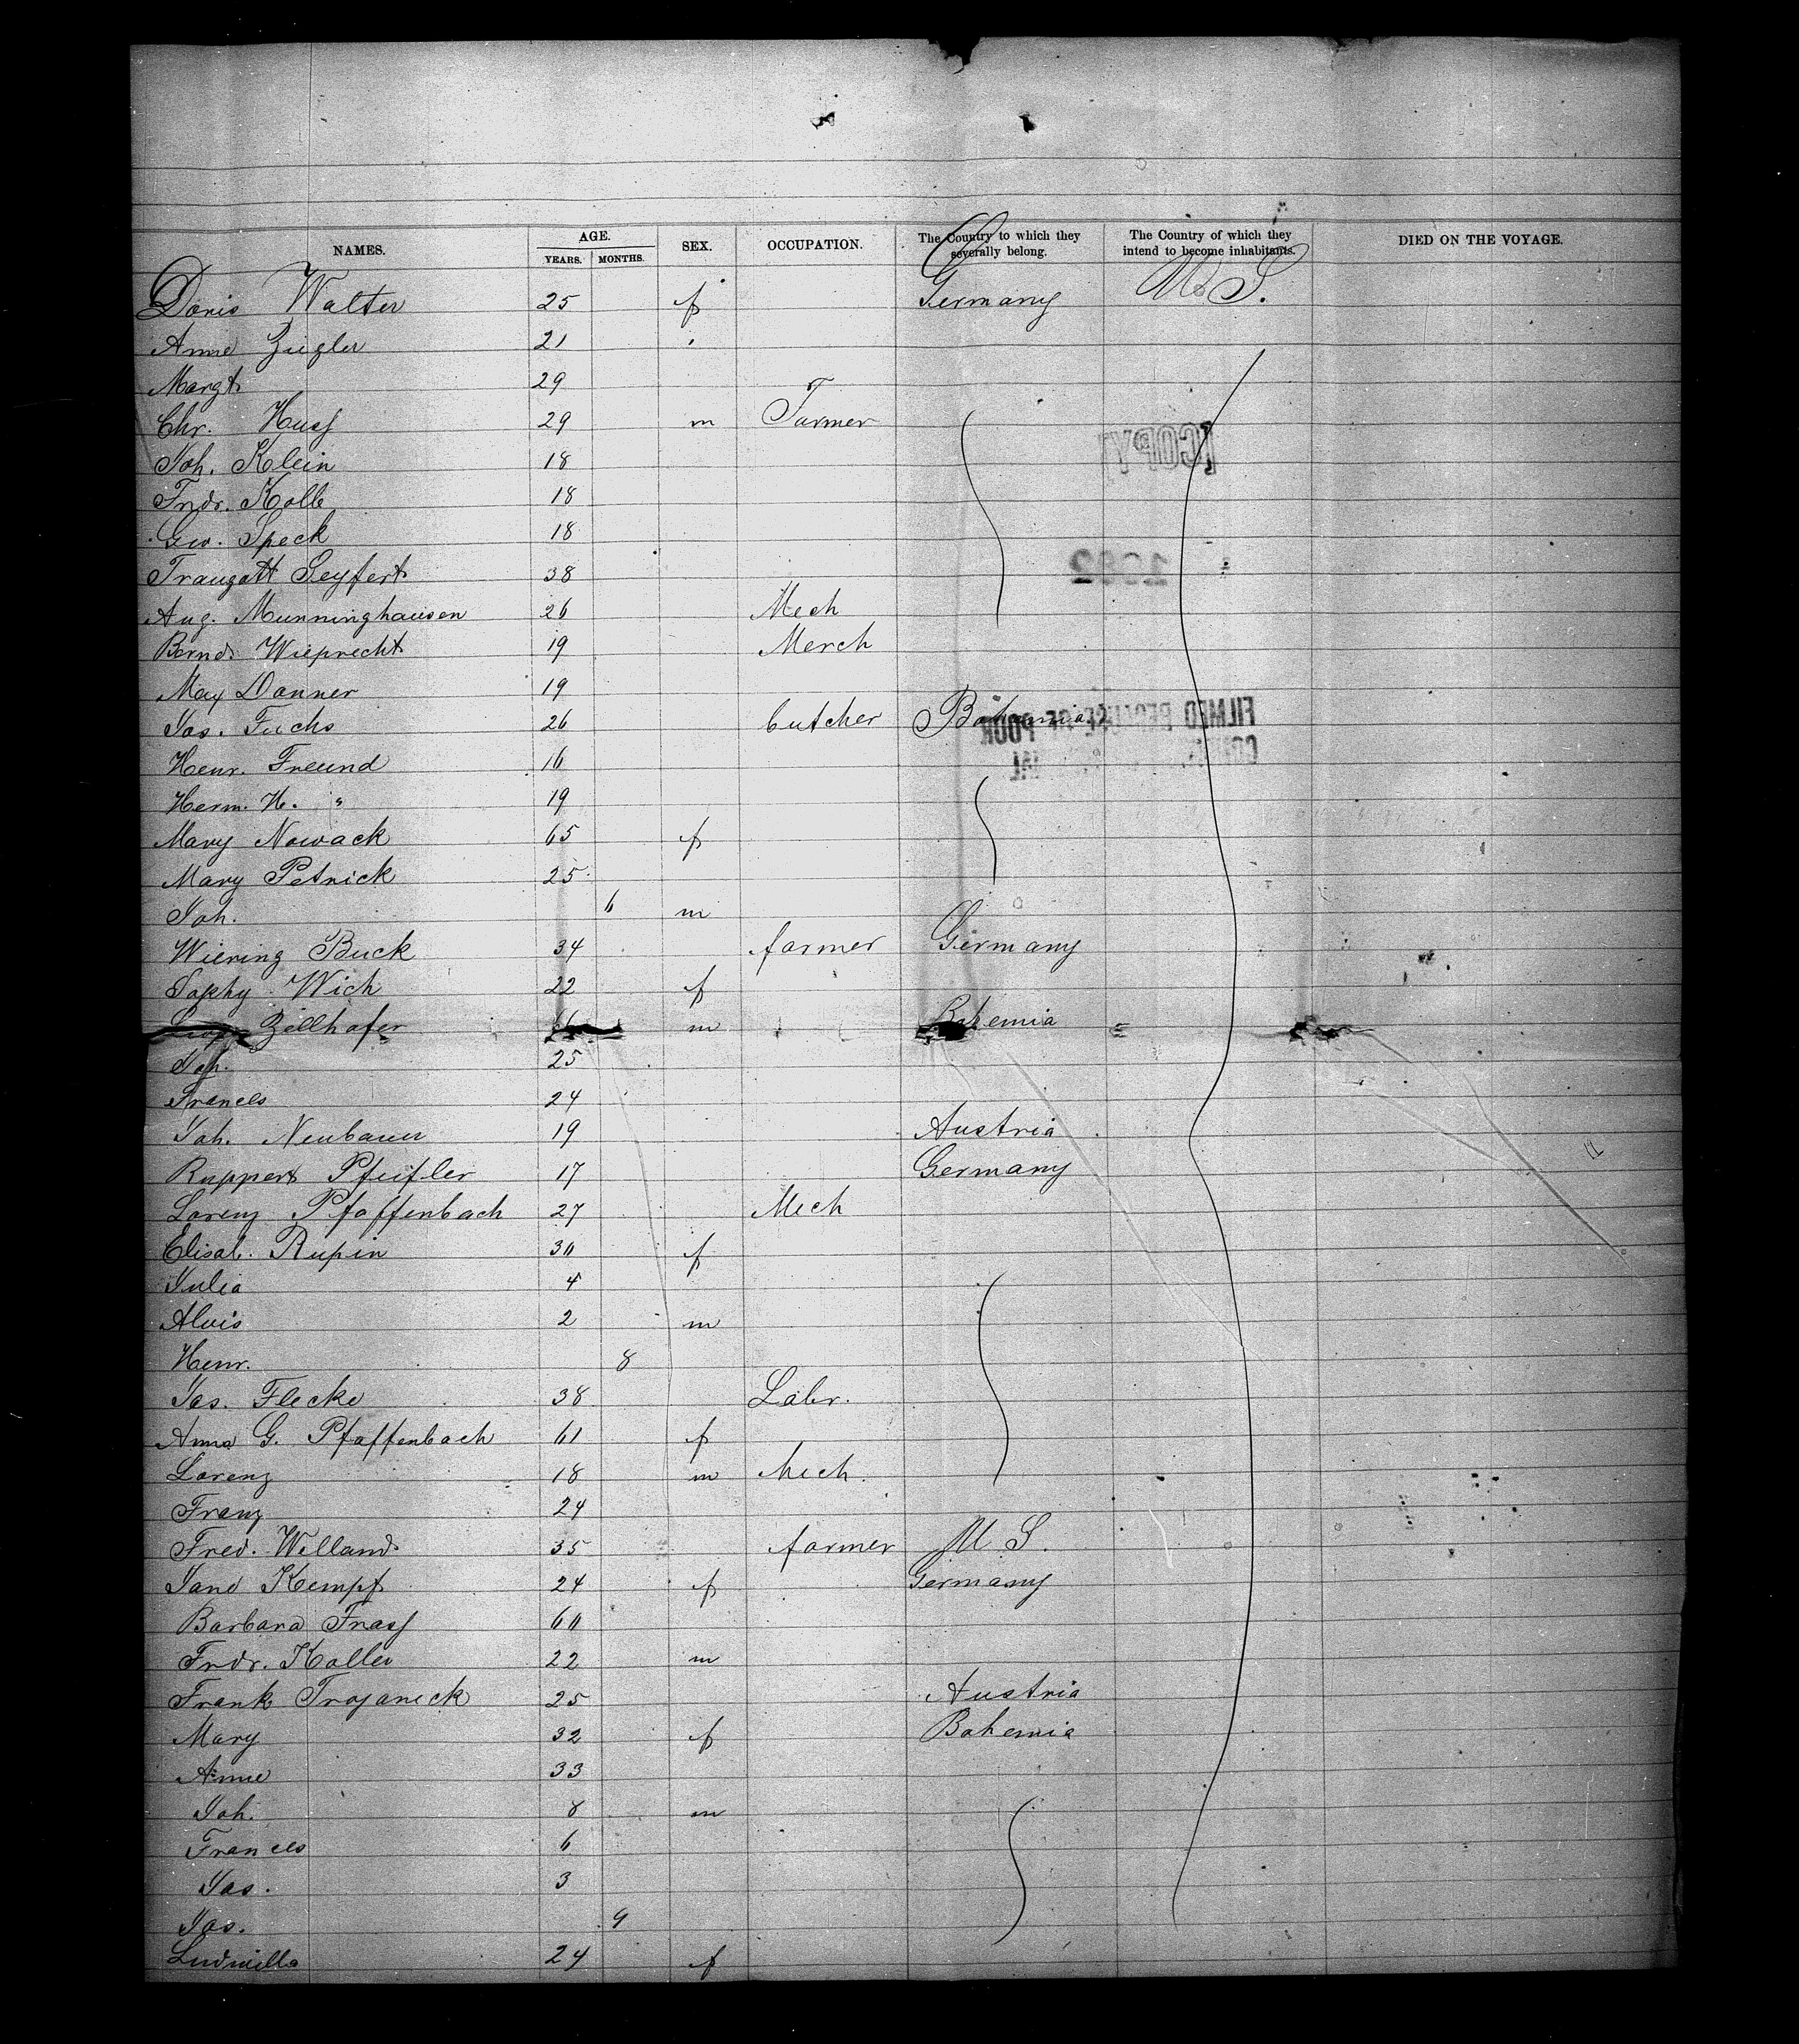 NAMES. AGE. YEARS. MONTHS. SEX. OCCUPATION. The Country to which they severally belong. The Country of which they intend to become inhabitants. DIED ON THE VOYAGE.
Doris Walter 25 f Germany U. S.
Anne Ziegler 21
Margt 29
Chr. Huss 29 m Farmer
Joh. Klein 18
[COPY]
Frdr. Kolb 18
Geo. Speck 18
Traugott Seyfert 38
Aug. Munninghausen 26 Mech
Bernd. Wieprecht 19 Merch
Max Danner 19
Jos. Fuchs 26 butcher Bohemia
FILMED BECAUSE OF POOR
Henr. Freund 16
Herm. H. " 19
Mary Nowack 65 f
Mary Petrick 25
Joh. 6 m
Wiering Buck 34 farmer Germany
Sophy Wich 22 f
Zellhofer m Bohemia
Joh. 25
Frances 24
Joh. Neubauer 19 Austria
Ruppert Pfeifler 17 Germany
Lorenz Pfaffenbach 27 Mech
Elisab. Rupin 30 f
Julia 4
Alois 2 m
Henr. 8
Jos. Flecke 38 Labr.
Anna G. Pfaffenbach 61 f
Lorenz 18 m Mech.
Franz 24
Fred. Welland 35 farmer U S.
Jane Kempf 24 f Germany
Barbara Frass 60
Frdr. Koller 22 m
Frank Trojaneck 25 Austria
Mary 32 f Bohemia
Annie 33
Joh. 8 m
Frances 6
Jos. 3
Jos. 9
Ludmilla 24 f